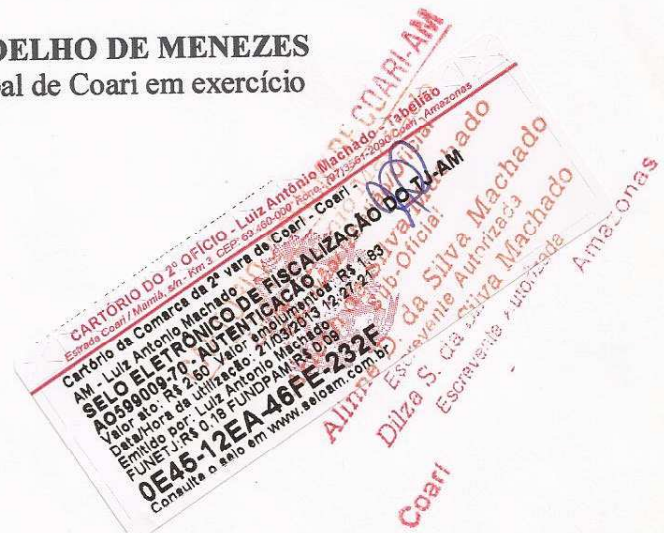 OELHO DE MENEZES
al de Coari em exercício
CARTÓRIO DO 2º OFÍCIO - Luiz Antônio Machado - Tabelião
Estrada Coari / Mamiá, s/n - Km 3 CEP: 69.460-000 Fone: (97)3561-2090 Coari - Amazonas
Cartório da Comarca da 2ª vara de Coari - Coari -
AM - Luiz Antonio Machado
SELO ELETRÔNICO DE FISCALIZAÇÃO DO TJ-AM
AO599009-70 - AUTENTICAÇÃO
Valor ato: R$ 2,60 Valor emolumentos: R$ 1,83
Data/Hora da utilização: 21/03/2013 12:27:21
Emitido por: Luiz Antonio Machado
FUNETJ:R$ 0,18 FUNDPAM:R$ 0,09
0E45-12EA-46FE-232F
Consulte o selo em www.seloam.com.br
DE COARI-AM
Sub-Oficial
Alinne D. da Silva Machado
Escrevente Autorizada
Dilza S. da Silva Machado
Escrevente Autorizada
Coari
Amazonas